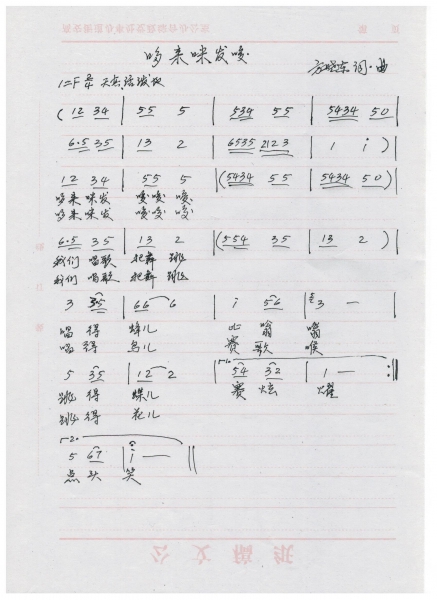 哆来咪发嗦
词·曲
1=F 2/4 天真 活泼
( 12 34 | 55 5 | 534 55 | 5434 50 |
6·5 35 | 13 2 | 6535 2123 | 1 i ) |
12 34 | 55 5 | (5434 55 | 5434 50 ) |
哆来 咪发 嗦·嗦· 嗦
哆来 咪发 嗦·嗦· 嗦
6·5 35 | 13 2 | (554 35 | 13 2 ) |
我们 唱歌 把舞 跳
我们 唱歌 把舞 跳
3 35 | 66 6 | i 56 | 3 — |
唱 得 蜂儿 比 嗡 嗡
唱 得 鸟儿 赛 歌 喉
5 35 | 12 2 | 54 32 | 1 — :||
跳 得 蝶儿 赛 炫 耀
跳 得 花儿
5 67 | i — ||
点 头 笑
公文稿纸